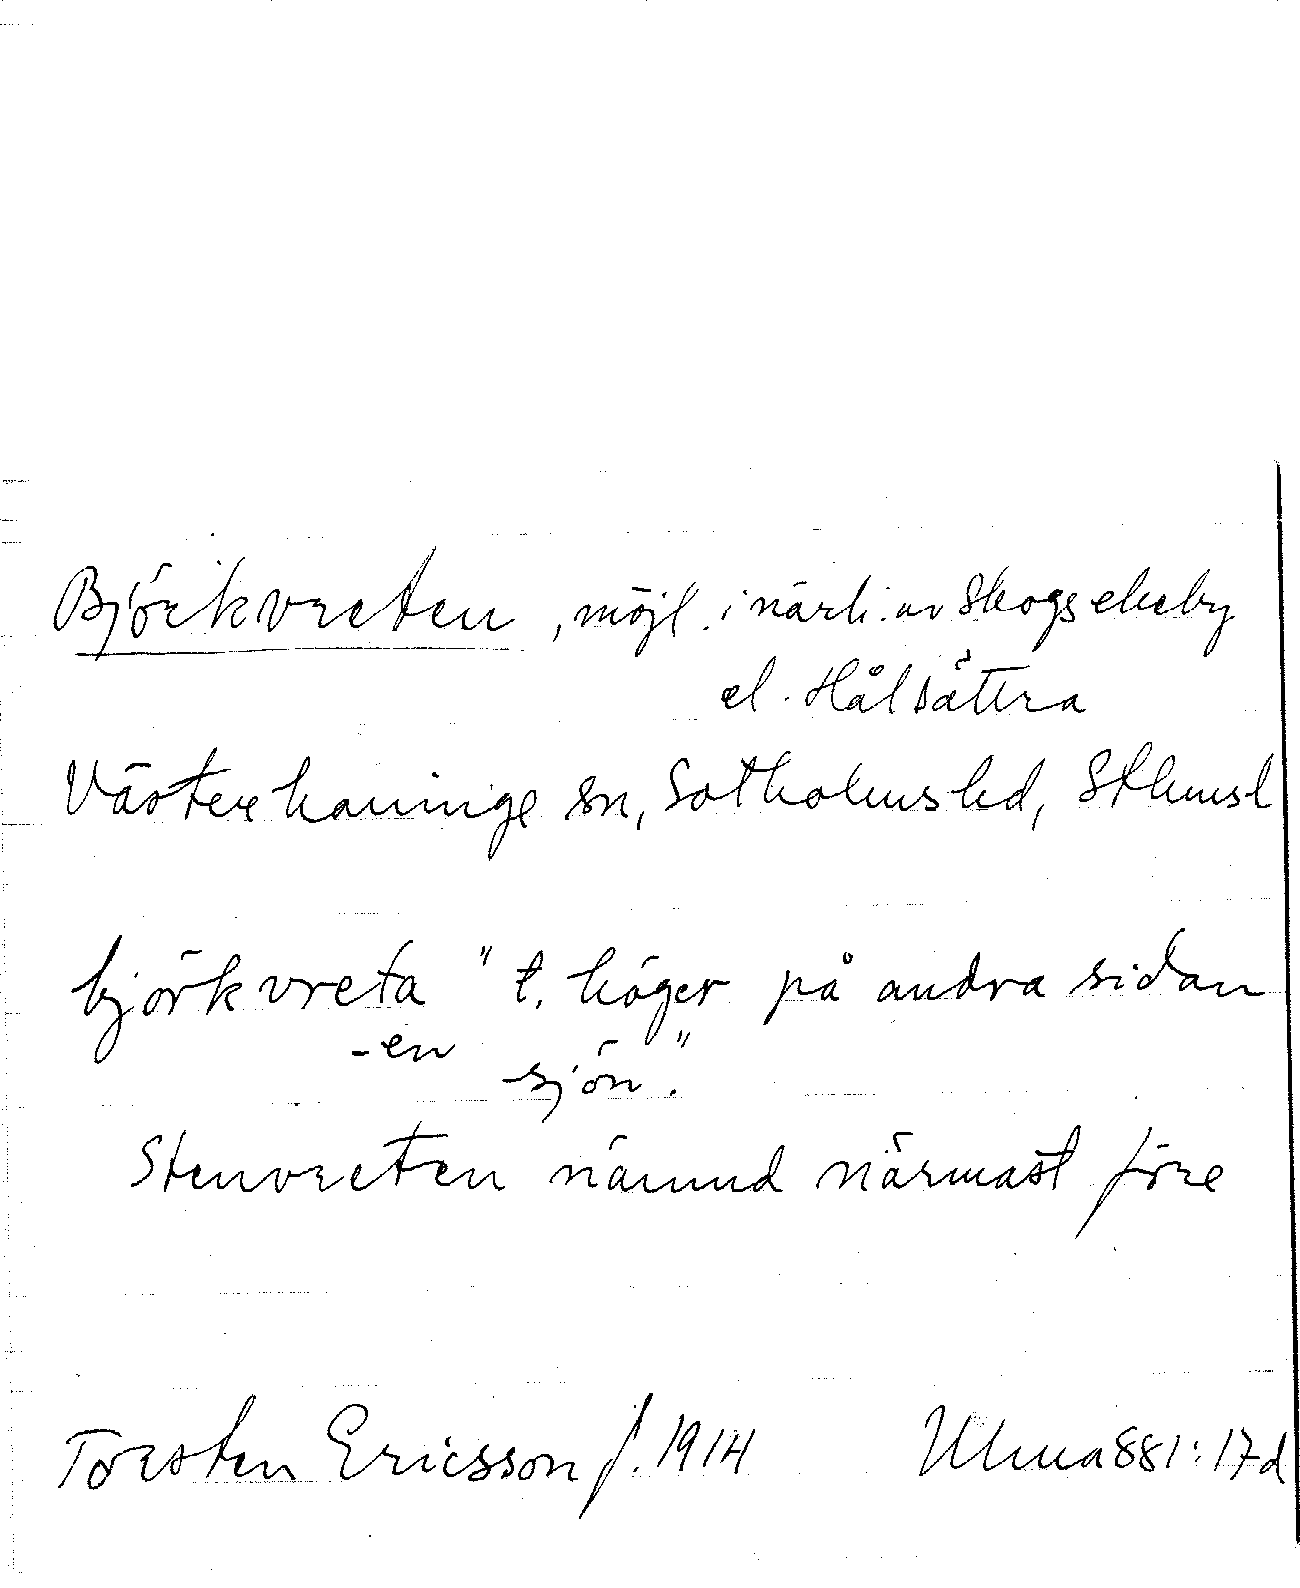 Björkvreten, möjl. i närh. av Skogsekeby
el. Hålsättra
Västerhaninge sn, Sotholms hd, Sthmsl
björkvreta "t. höger på andra sidan
-en sjön."
Stenvreten nämnd närmast före
Torsten Ericsson f. 1914 Ulma 881:17d